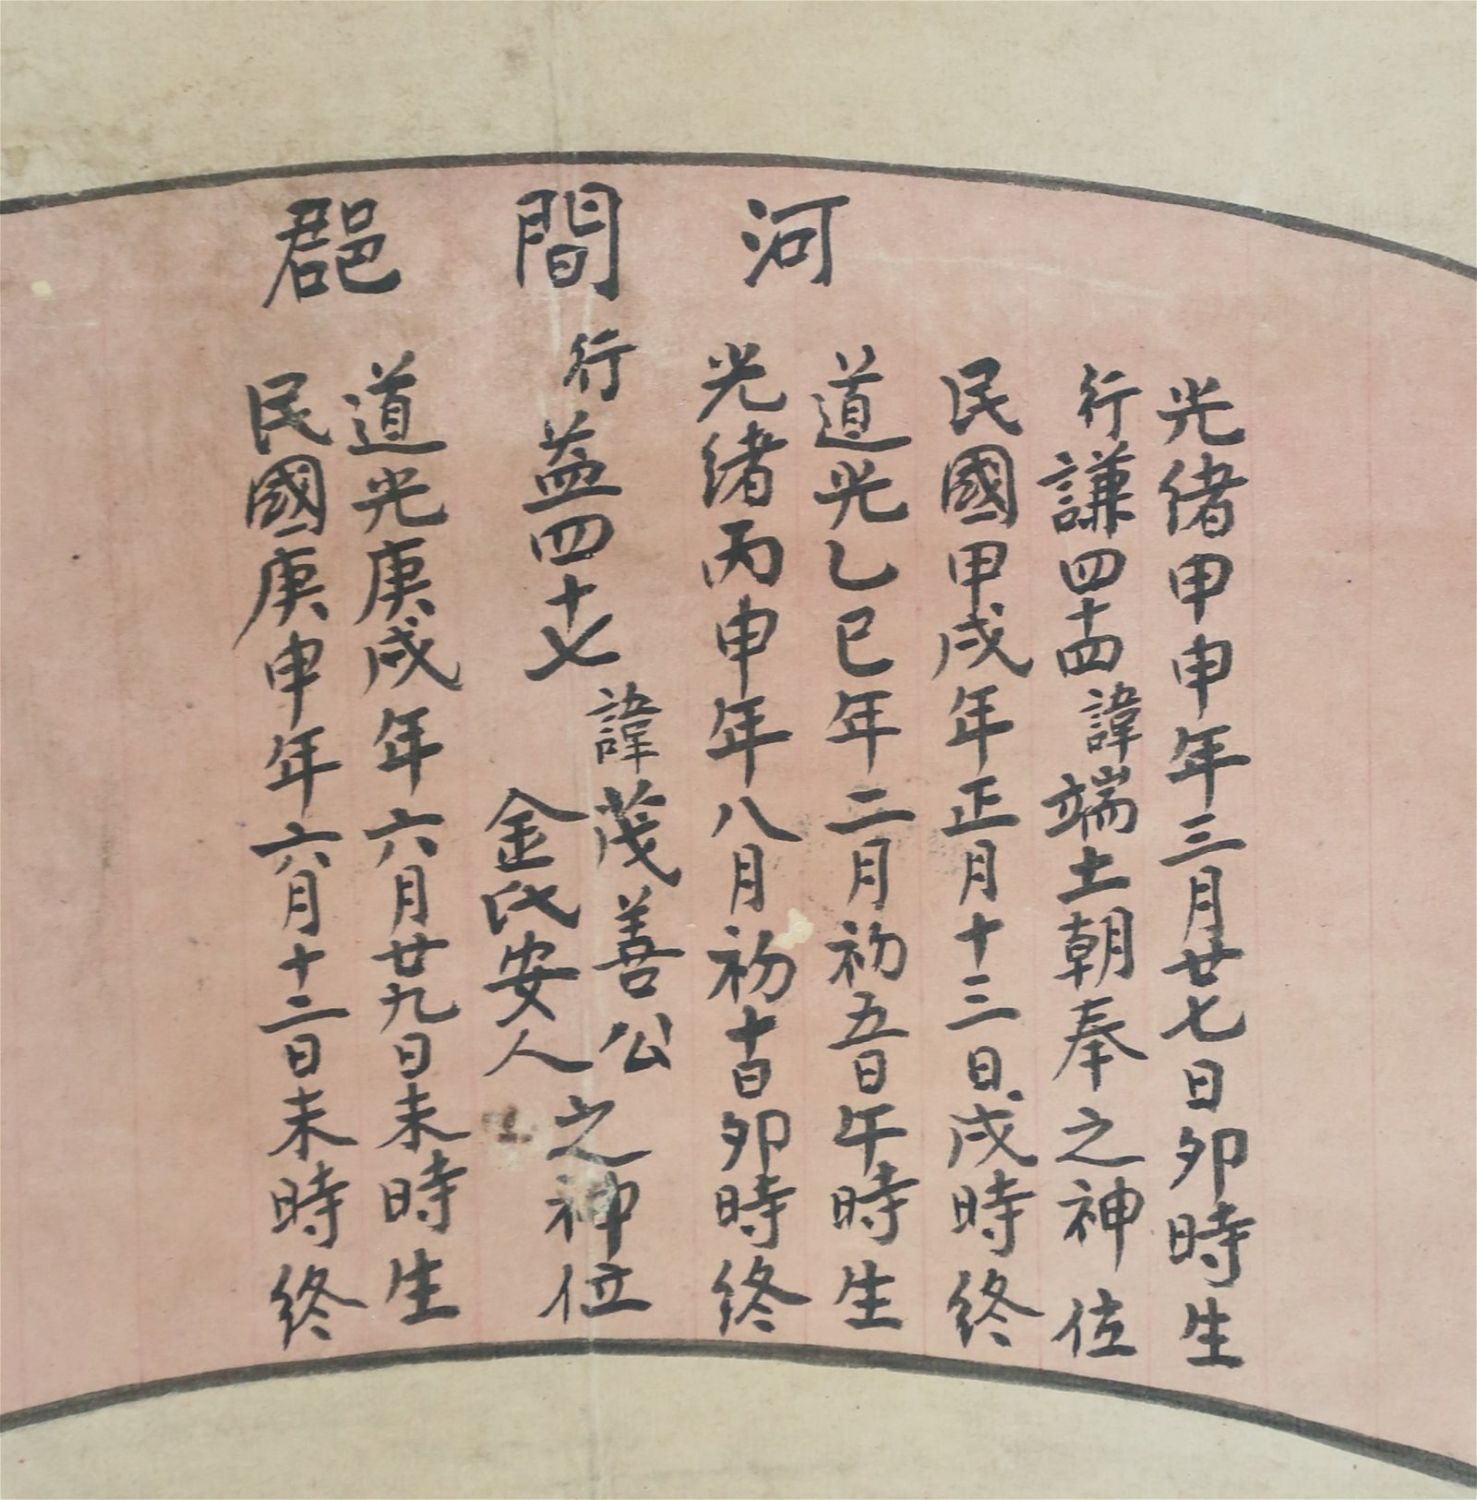 河間郡
光緒甲申年三月廿七日卯時生
行謙四十四諱端土朝奉之神位
民國甲戌年正月十三日戌時終
道光乙巳年二月初五日午時生
光緒丙申年八月初十日卯時終
行益四十七
諱茂善公
金氏安人
之神位
道光庚戌年六月廿九日未時生
民國庚申年六月十二日未時終